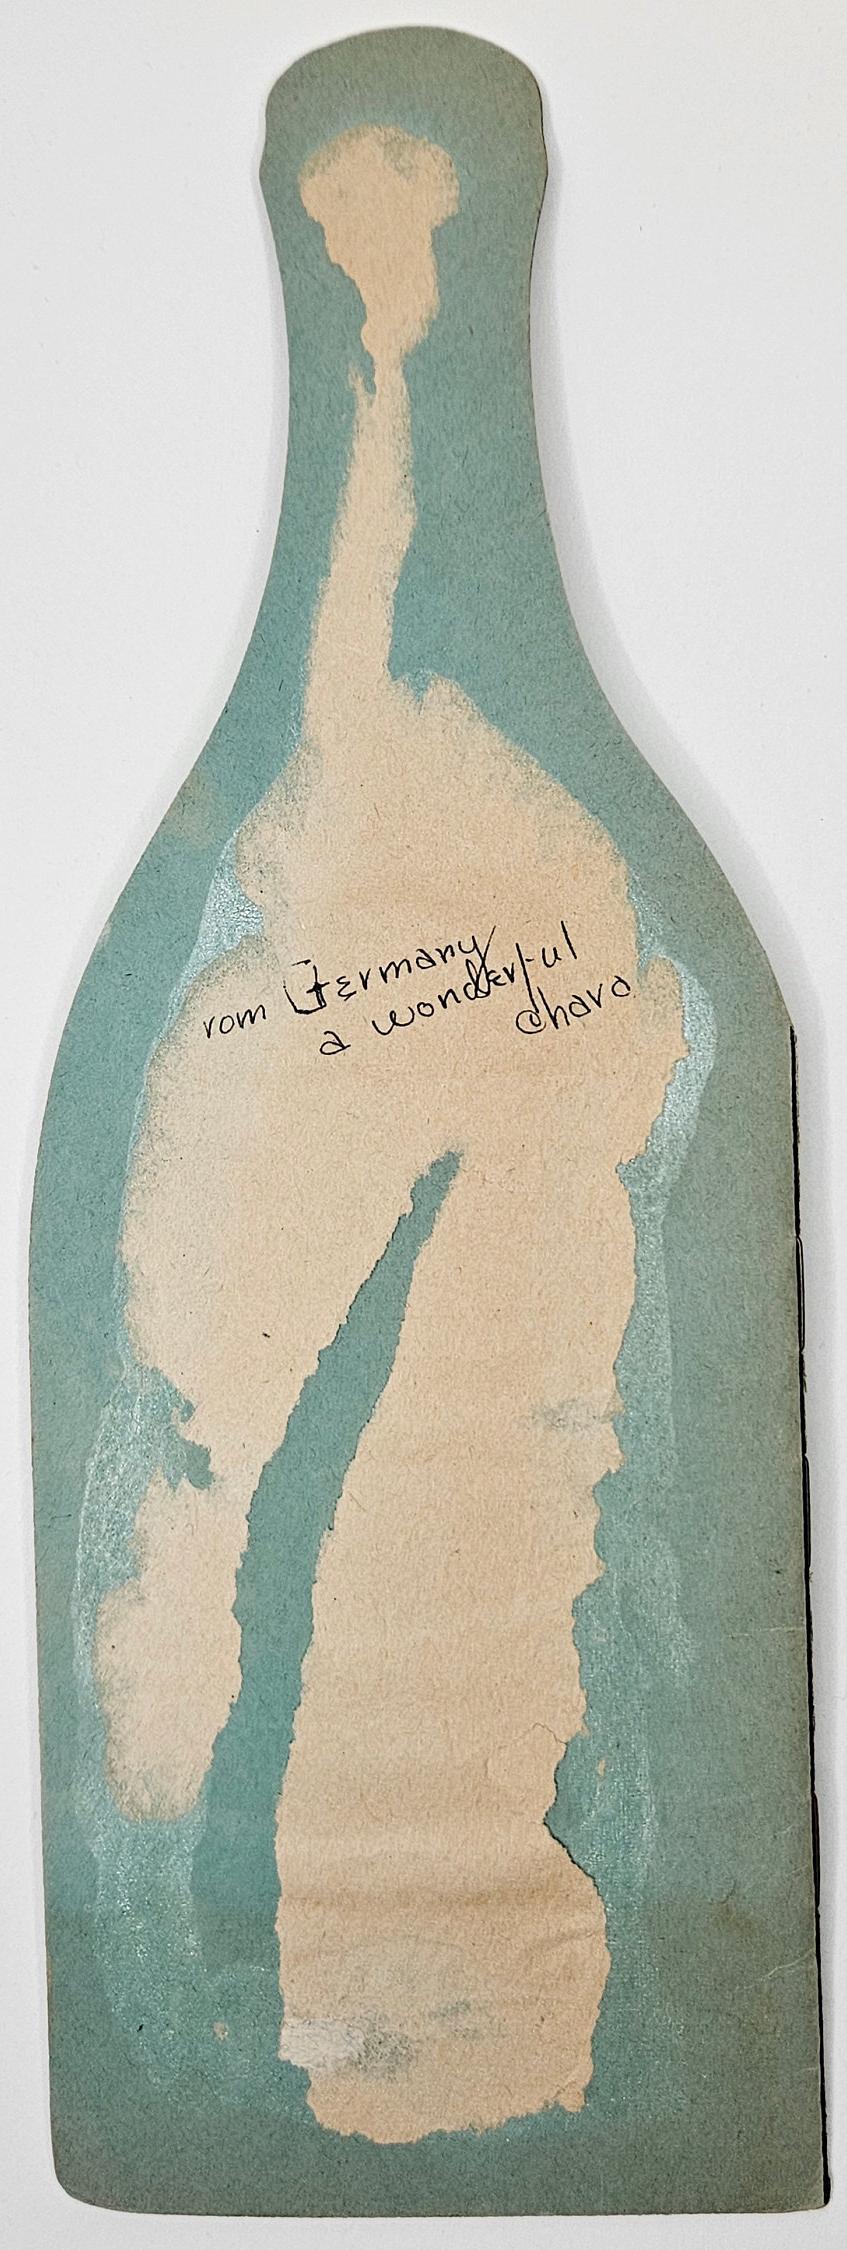 rom Germany
a wonderful
charo